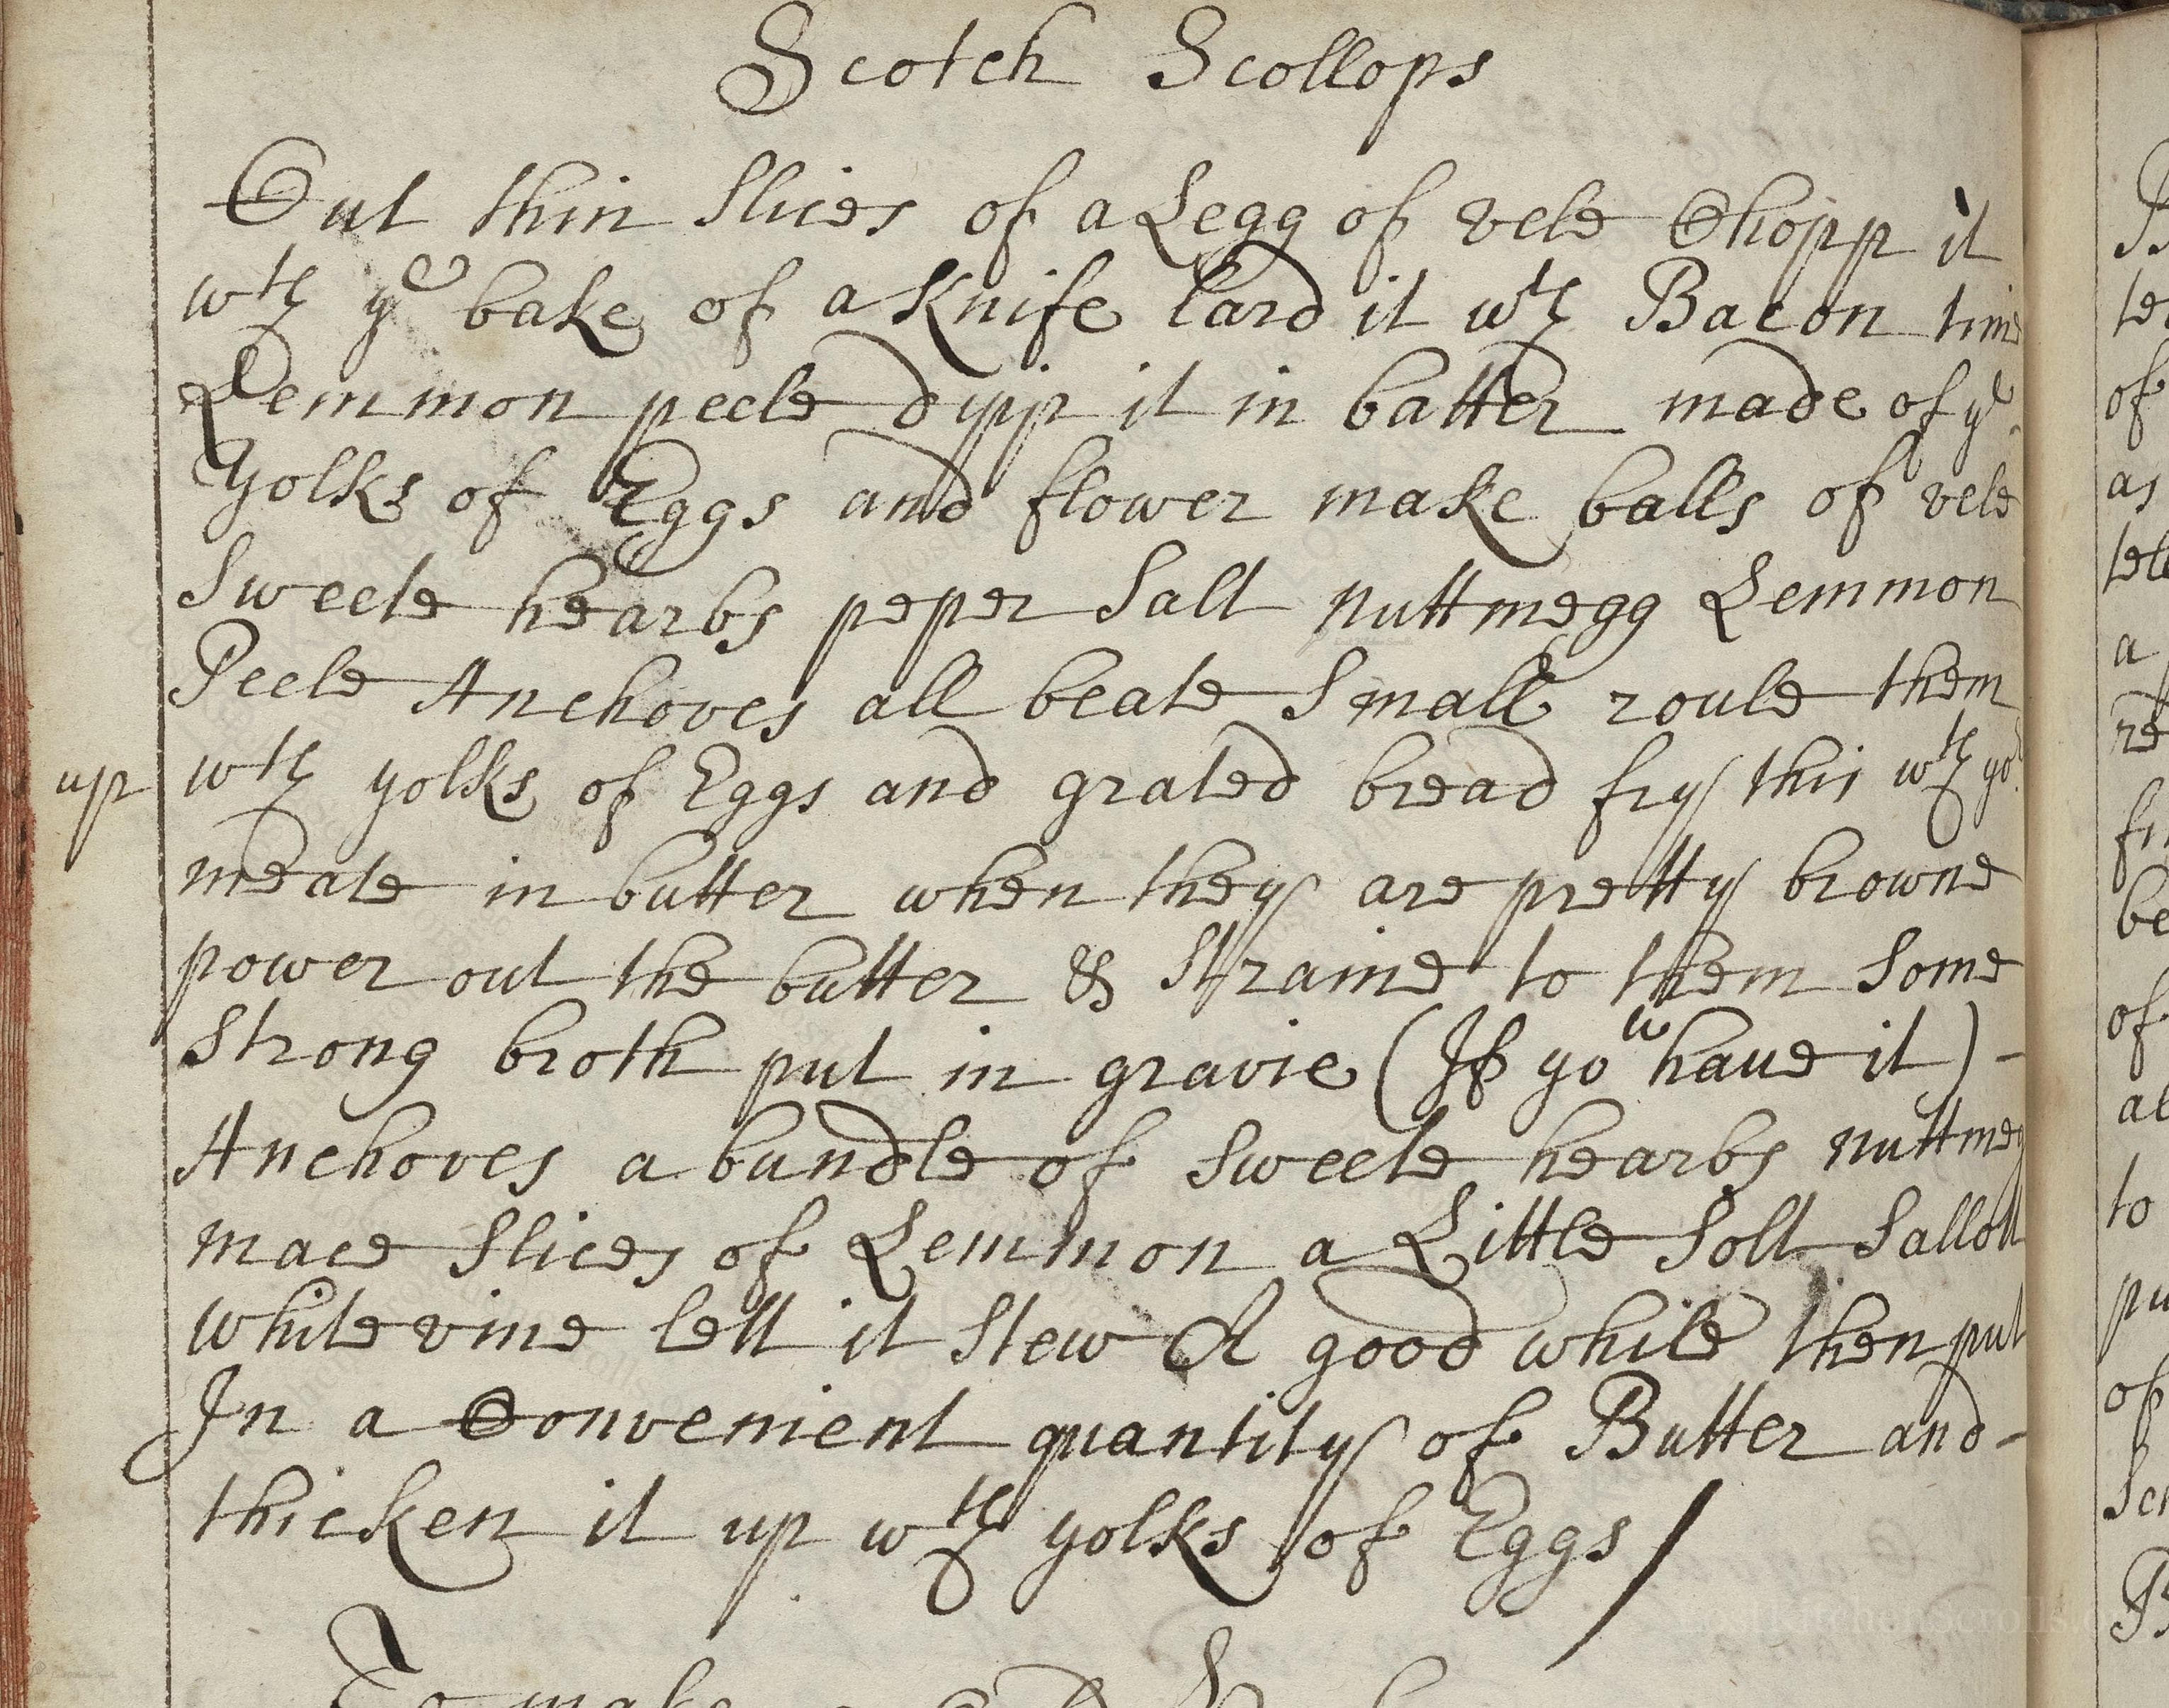 Scotch Scollops
Cut thin Slices of a Legg of vele Chopp it
wth ye bake of a Knife lard it wth Bacon time
Lemmon peele dipp it in batter made of ye
Yolks of Eggs and flower make balls of vele
Sweete hearbs peper Salt nuttmegg Lemmon
Peele Anchoves all beate Small roule them
up wth yolks of Eggs and grated bread fry this wth yor
meate in butter when they are pretty browne
power out the butter & Straine to them Some
Strong broth put in gravie (If you have it) -
Anchoves a bundle of Sweete hearbs nuttmeg
mace Slices of Lemmon a Little Solt Sallott
white vine lett it Stew A good while then put
In a Convenient quantity of Butter and -
thicken it up wth yolks of Eggs /
To make